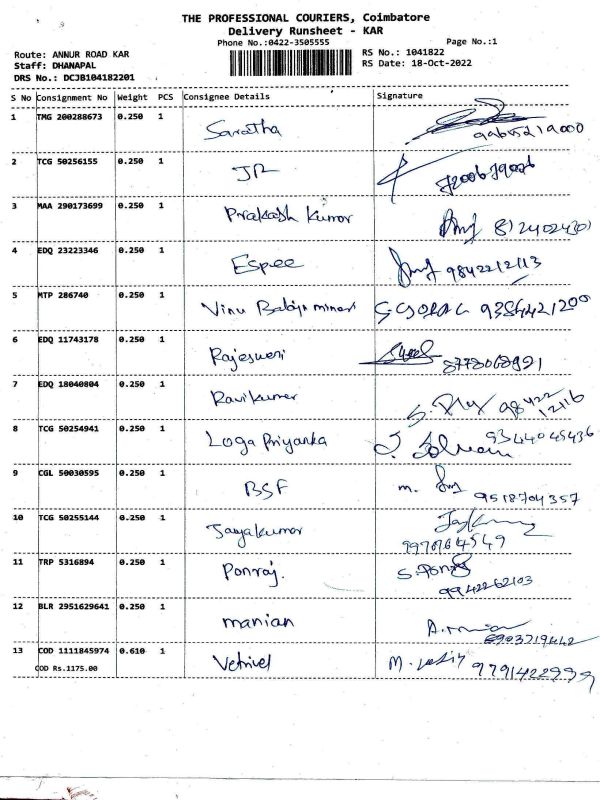 THE PROFESSIONAL COURIERS, Coimbatore
Delivery Runsheet - KAR
Phone No.:0422-3505555
Page No.:1
Route: ANNUR ROAD KAR
RS No.: 1041822
Staff: DHANAPAL
RS Date: 18-Oct-2022
DRS No.: DCJB104182201
S No Consignment No Weight PCS Consignee Details Signature
1 TMG 200288673 0.250 1 Saratha
2 TCG 50256155 0.250 1 JR
3 MAA 290173699 0.250 1 Prakash Kumar
4 EDQ 23223346 0.250 1 Espee 9842212113
5 MTP 286740 0.250 1 Vinu 9384421200
6 EDQ 11743178 0.250 1 Rajesweri
7 EDQ 18040804 0.250 1 Ravikumar 98422 12116
8 TCG 50254941 0.250 1 Loga Priyanka 9344045436
9 CGL 50030595 0.250 1 BSF m. 9518704357
10 TCG 50255144 0.250 1 Jayakumar
11 TRP 5316894 0.250 1 Ponraj. S. Ponraj 9942262103
12 BLR 2951629641 0.250 1 manian
13 COD 1111845974 0.610 1 Vetrivel 9791422999
COD Rs.1175.00